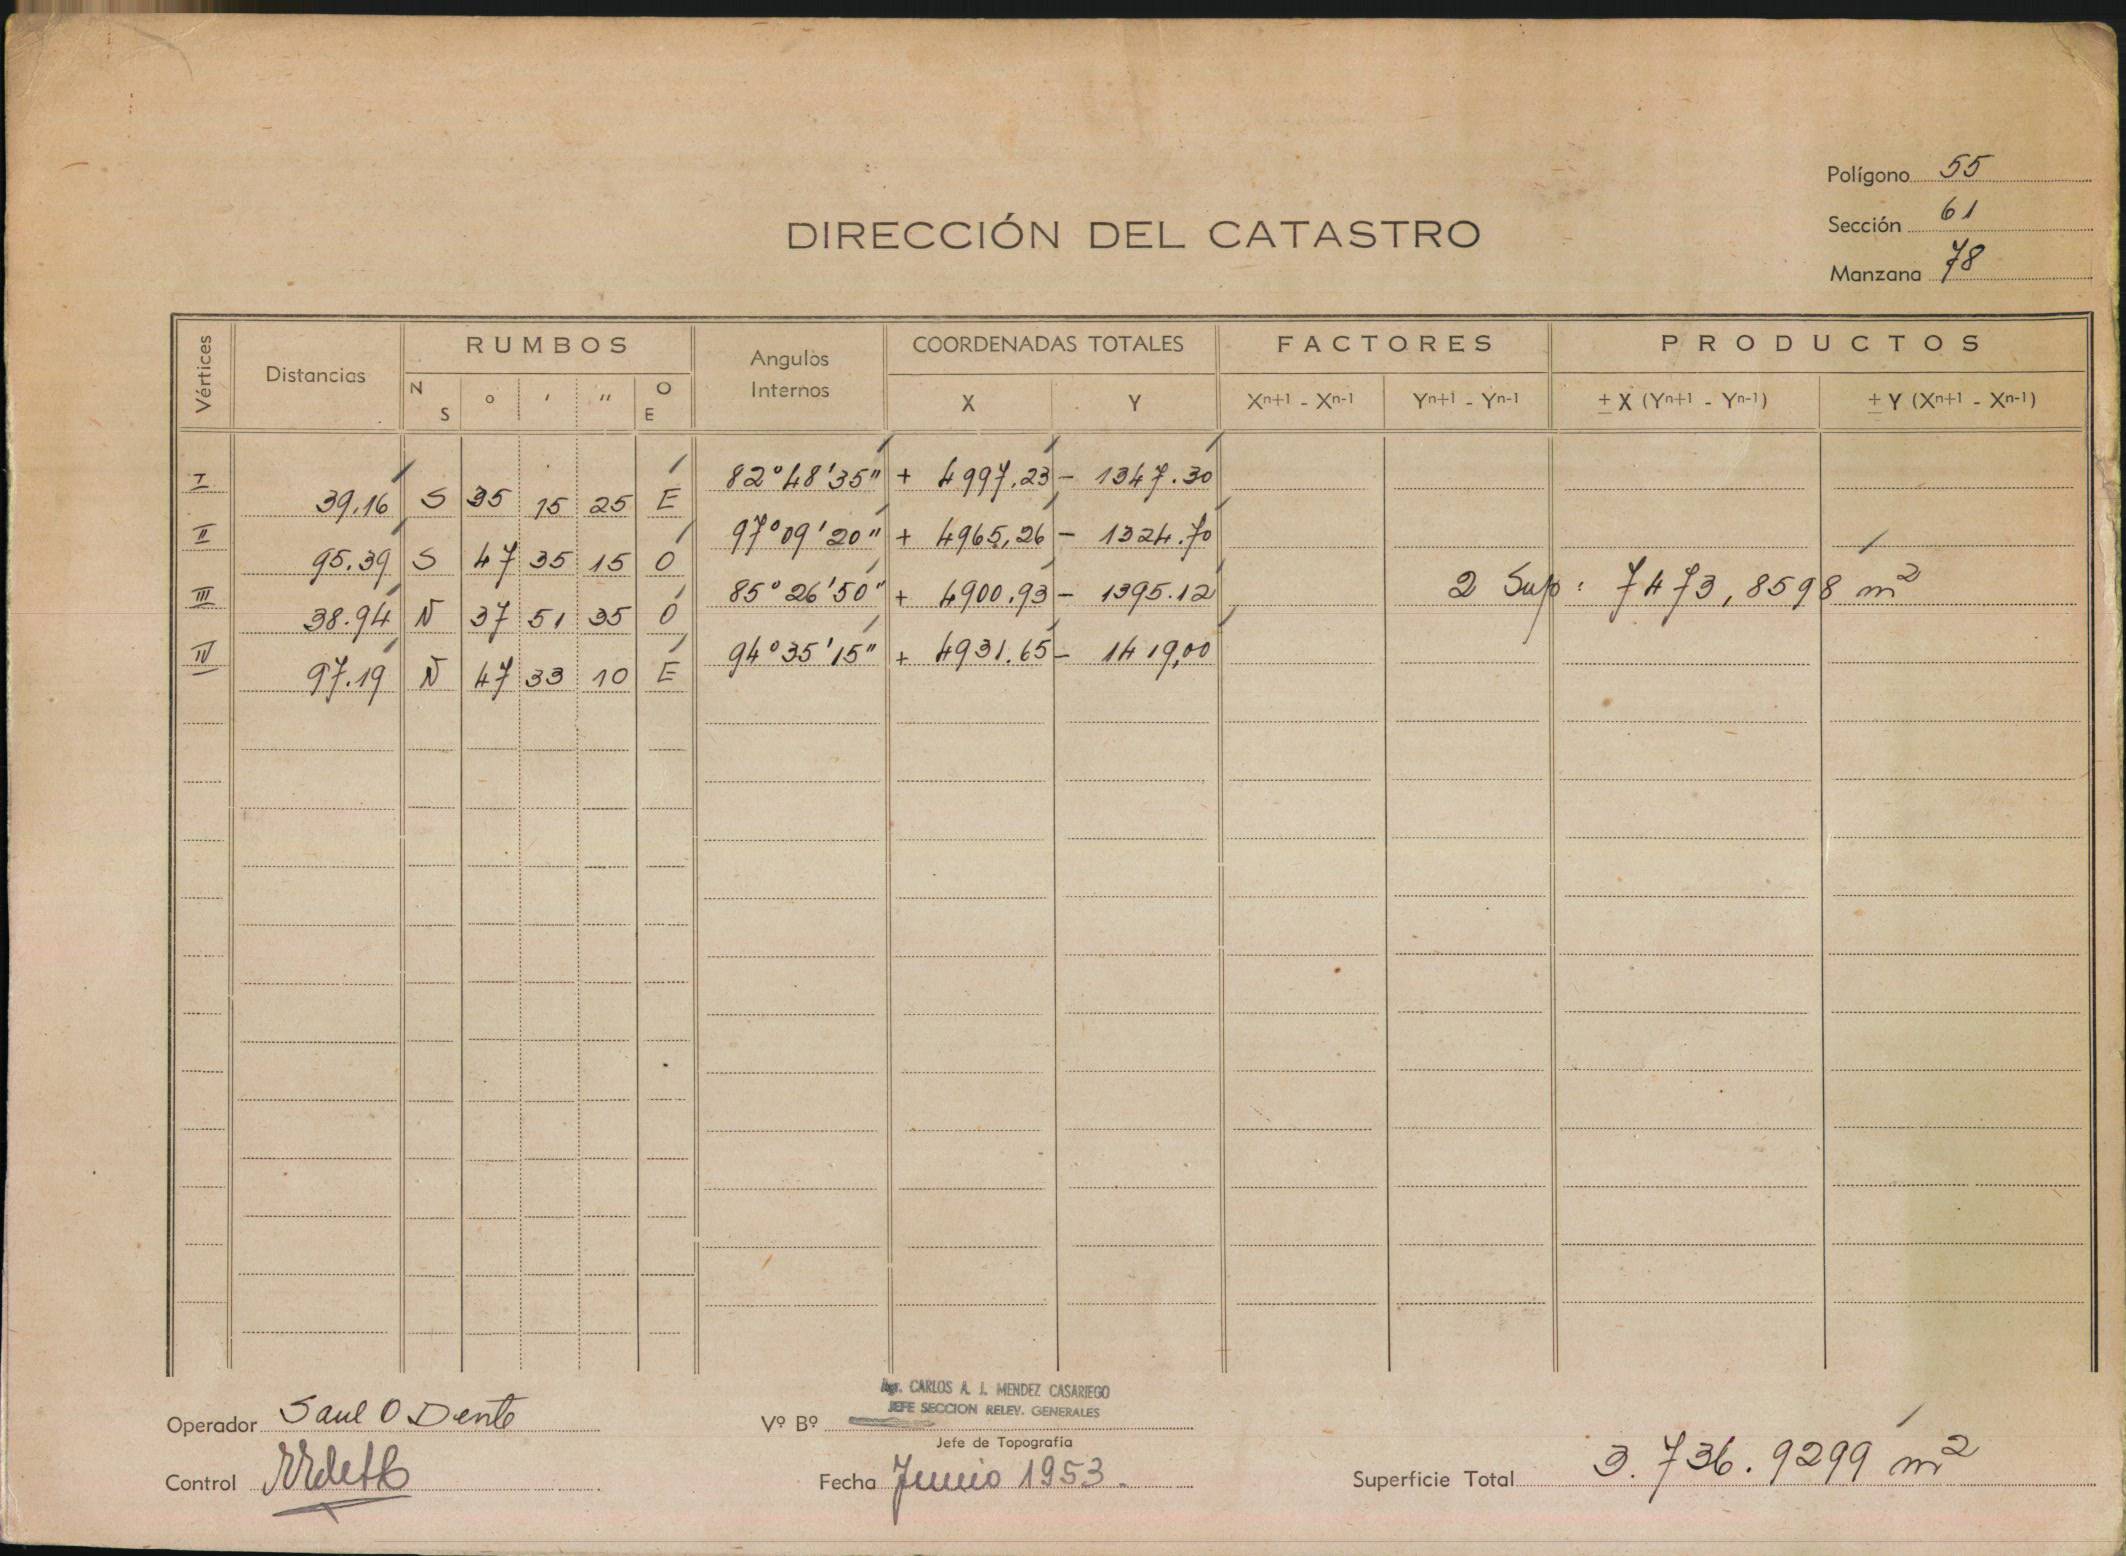 Polígono 55
Sección 61
Manzana 78
DIRECCIÓN DEL CATASTRO
Vértices Distancias RUMBOS Angulos Internos COORDENADAS TOTALES FACTORES PRODUCTOS
N S ° ' " O E X Y Xn+1 - Xn-1 Yn+1 - Yn-1 ± X (Yn+1 - Yn-1) ± Y (Xn+1 - Xn-1)
I 82°48'35" + 4997.23 - 1347.30
39.16 S 35 15 25 E
II 97°09'20" + 4965,26 - 1324.70
95.39 S 47 35 15 O
III 85°26'50" + 4900.93 - 1395.12 2 Sup: 7473,8598 m²
38.94 N 37 51 35 O
IV 94°35'15" + 4931.65 - 1419,00
97.19 N 47 33 10 E
CARLOS A. J. MENDEZ CASARIEGO
JEFE SECCION RELEV. GENERALES
Operador Saul O Dente Vº Bº
Jefe de Topografía
Control Fecha Junio 1953. Superficie Total 3.736.9299 m²